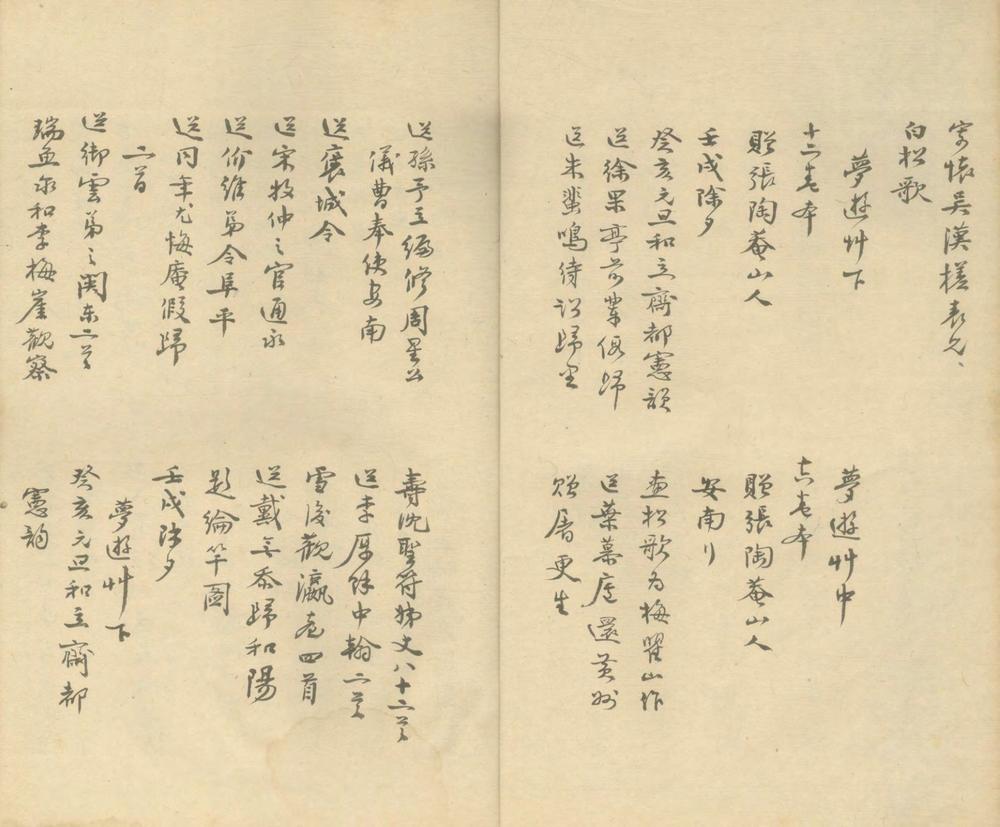 寄懷吳漢槎表兄、
白松歌
夢遊艸下
十二卷本
贈張陶菴山人
壬戌除夕
癸亥元旦和立齋都憲韻
送徐果亭前輩假歸
送朱蜚鳴待詔歸里
夢遊艸中
十六卷本
贈張陶菴山人
安南行
畫松歌为梅瞿山作
送葉慕廬還黃州
贈屠更生
送孫予立編修周星公
儀曹奉使安南
送襄城令
送宋牧仲之官通永
送价維弟令阜平
送同年尤悔庵假歸
二首
送御雲弟之関东二首
瑞和李梅崖觀察
壽沈聖符姊丈八十二首
送李厚餘中翰二首
雪後觀瀛臺四首
送戴无忝歸和陽
題綸竿圖
壬戌除夕
夢遊艸下
癸亥元旦和立齋都
憲韵